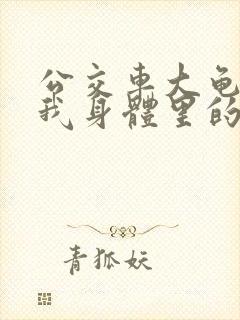 公交車大龟
我身體里的
青狐妖